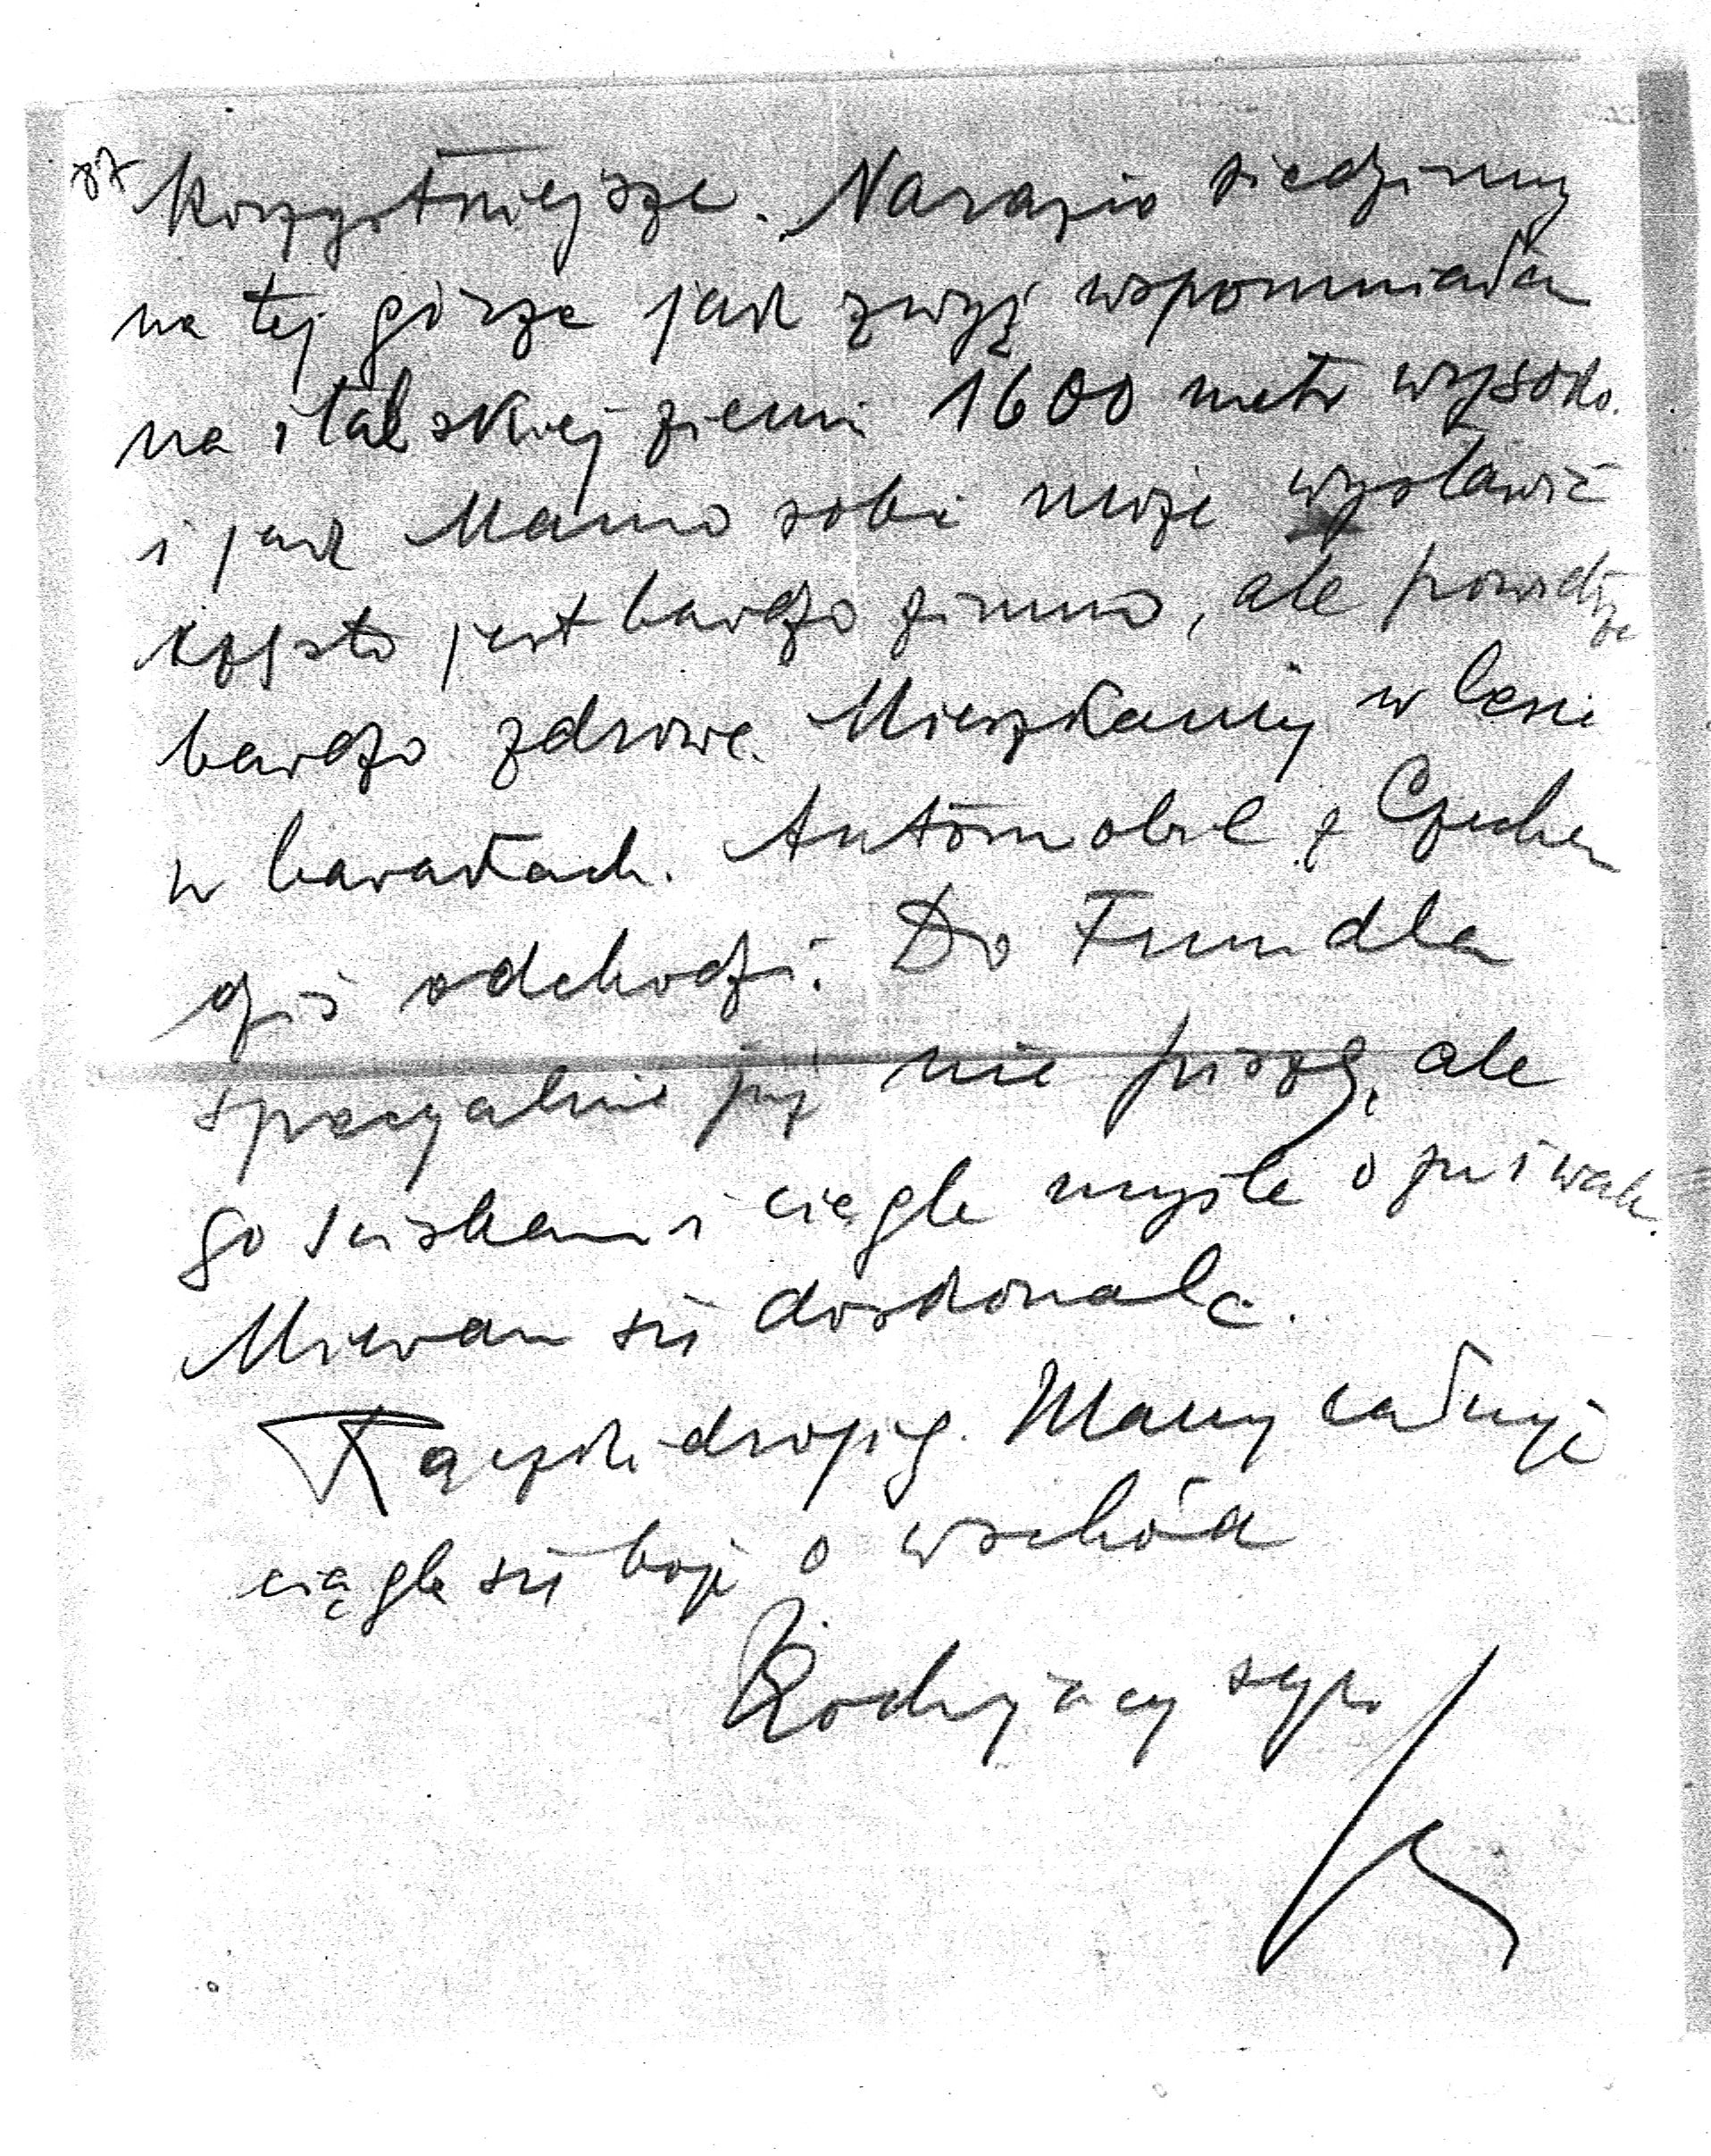 87
korzystniejsze. Narazie siedzimy
na tej górze jak zwyż wspomniałem
na italskiej ziemi 1600 metr wysoko.
i jak Mama sobie może wystawić
często jest bardzo zimno, ale powietrze
bardzo zdrowe. Mieszkamy w lesie
w barakach. Automobil z Czechem
dziś odchodzi. Do
specyalnie już nie piszę, ale
go ściskam i ciągle myśle o
Miewam się doskonale.
Rączki drogiej Mamy całuję
ciągle się boję o wschód
Kochający syn